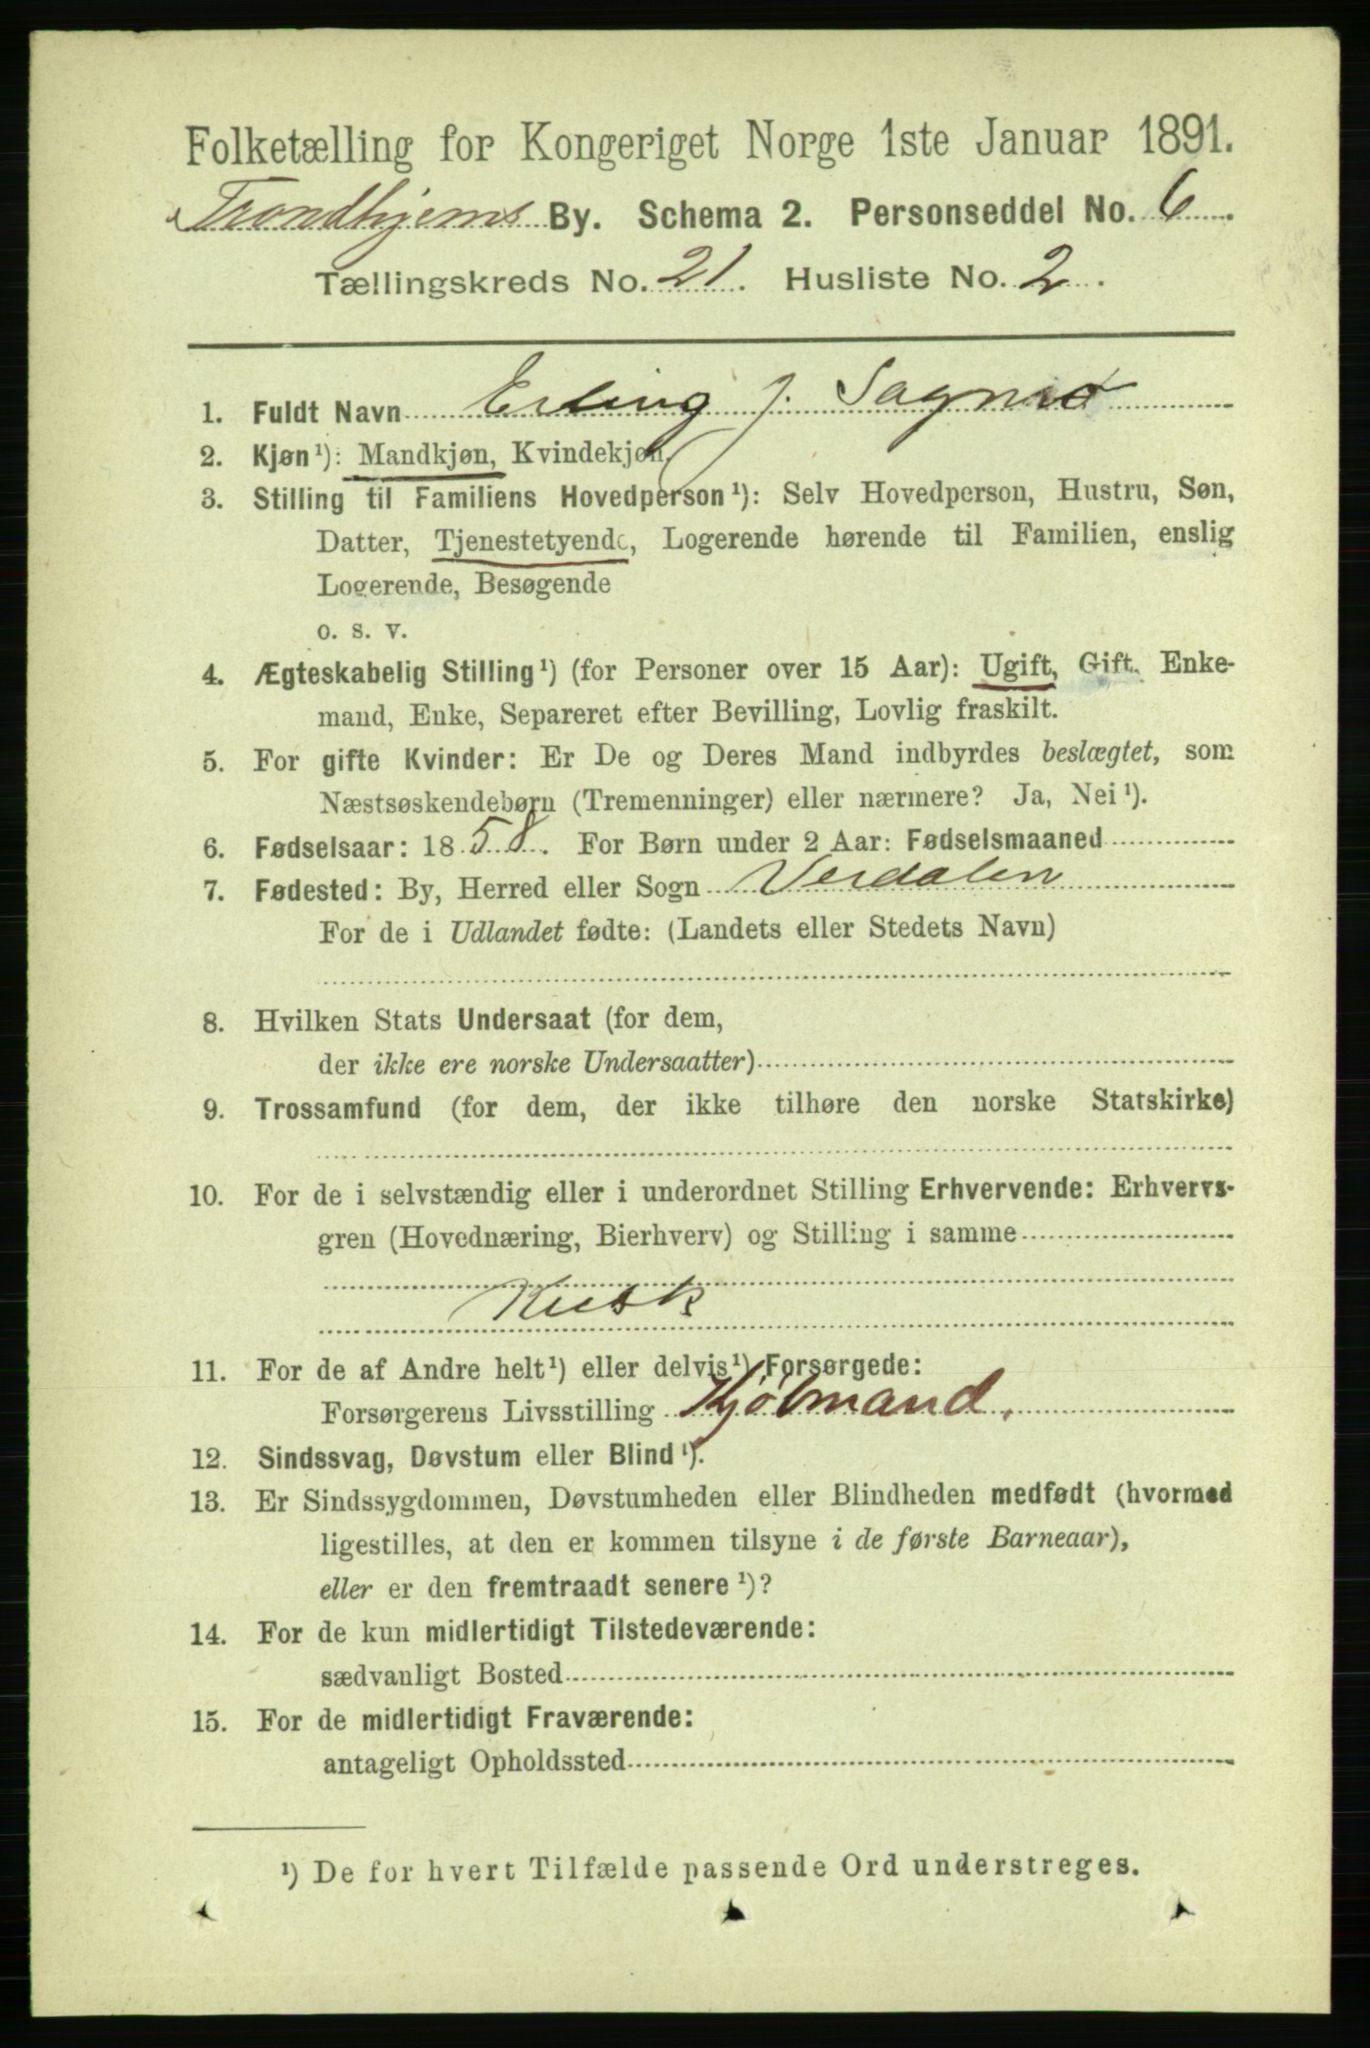 Folketælling for Kongeriget Norge 1ste Januar 1891.
Trondhjems By. Schema 2. Personseddel No. 6.
Tællingskreds No. 21. Husliste No. 2.
1. Fuldt Navn Erling J. Sagmo
2. Kjøn ¹): Mandkjøn, Kvindekjøn.
3. Stilling til Familiens Hovedperson ¹): Selv Hovedperson, Hustru, Søn,
Datter, Tjenestetyende, Logerende hørende til Familien, enslig
Logerende, Besøgende
o. s. v.
4. Ægteskabelig Stilling ¹) (for Personer over 15 Aar): Ugift, Gift, Enke-
mand, Enke, Separeret efter Bevilling, Lovlig fraskilt.
5. For gifte Kvinder: Er De og Deres Mand indbyrdes beslægtet, som
Næstsøskendebørn (Tremenninger) eller nærmere? Ja, Nei ¹).
6. Fødselsaar: 1858. For Børn under 2 Aar: Fødselsmaaned
7. Fødested: By, Herred eller Sogn Verdalen
For de i Udlandet fødte: (Landets eller Stedets Navn)
8. Hvilken Stats Undersaat (for dem,
der ikke ere norske Undersaatter)
9. Trossamfund (for dem, der ikke tilhøre den norske Statskirke)
10. For de i selvstændig eller i underordnet Stilling Erhvervende: Erhvervs-
gren (Hovednæring, Bierhverv) og Stilling i samme
Kusk
11. For de af Andre helt ¹) eller delvis ¹) Forsørgede:
Forsørgerens Livsstilling Kjøbmand.
12. Sindssvag, Døvstum eller Blind ¹).
13. Er Sindssygdommen, Døvstumheden eller Blindheden medfødt (hvormed
ligestilles, at den er kommen tilsyne i de første Barneaar),
eller er den fremtraadt senere ¹)?
14. For de kun midlertidigt Tilstedeværende:
sædvanligt Bosted
15. For de midlertidigt Fraværende:
antageligt Opholdssted
¹) De for hvert Tilfælde passende Ord understreges.